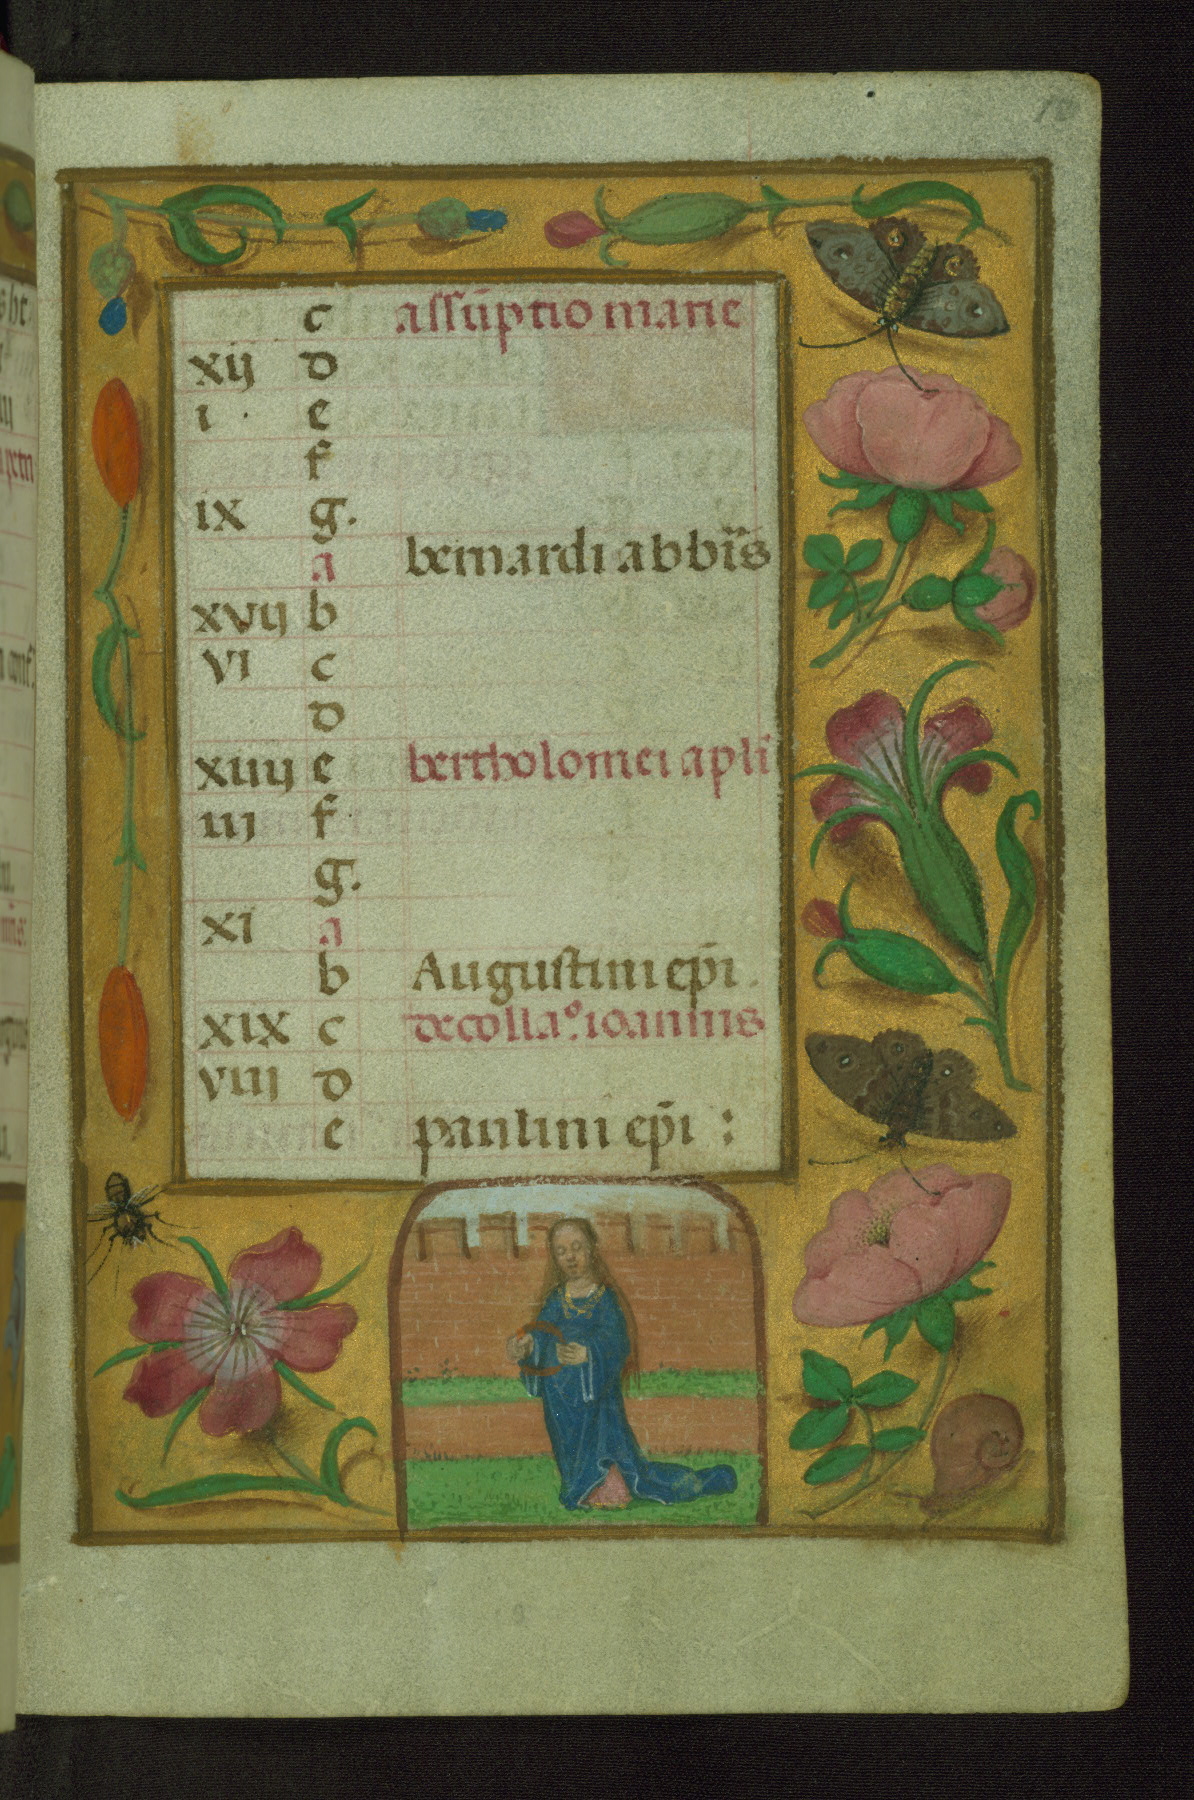 c assūptio marie
xij d
i · e
f
ix g.
a bernardi abbīs
xvij b
vi c
d
xiiij e bertholomei apłi
iij f
g.
xi a
b Augustini ep̄i.
xix c decolla⁰. ioannis
viij d
e paulini ep̄i :